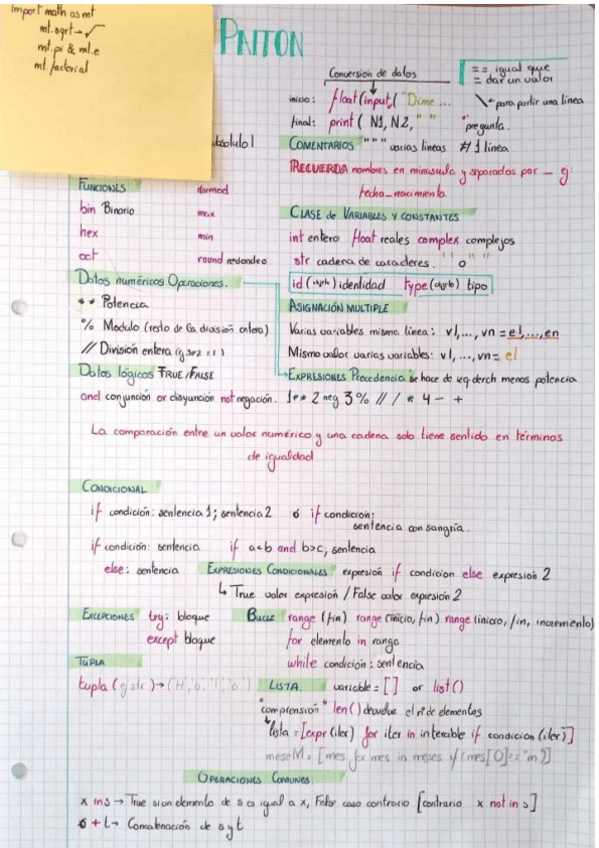 import math as mt
mt.sqrt → √
mt.pi & mt.e
mt.factorial
PHITON
Conversion de datos
inicio: float(input("Dime ...
final: print( N1, N2, " "
== igual que
= dar un valor
\ ← para partir una linea
pregunta.
absoluto
COMENTARIOS """ varias lineas # 1 linea
RECUERDA nombres en minuscula y separados por _ ej:
fecha_nacimiento.
FUNCIONES
bin Binario
max
hex
min
oct
round redondeo
CLASE de VARIABLES Y CONSTANTES
int entero float reales complex complejos
str cadena de caracteres. " " o ' '
id( ) identidad type( ) tipo
Datos numéricos Operaciones.
** Potencia
% Modulo (resto de la division entera)
// División entera (ej 3//2 = 1)
ASIGNACIÓN MULTIPLE
Varias variables misma linea: v1,...,vn = e1,...,en
Mismo valor varias variables: v1,...,vn = e1
Datos lógicos TRUE/FALSE
and conjunción or disyunción not negación.
EXPRESIONES Precedencia se hace de izq derch menos potencia
1** 2 neg 3 % // / * 4 - +
La comparación entre un valor numérico y una cadena solo tiene sentido en términos
de igualdad
CONDICIONAL
if condición: sentencia 1; sentencia 2 ó if condicion:
sentencia con sangría.
if condición: sentencia if a<b and b>c, sentencia
else: sentencia
EXPRESIONES CONDICIONALES expresión if condicion else expresión 2
↳ True valor expresión / False valor expresión 2
EXCEPCIONES try: bloque
except bloque
BUCLE range (fin) range (inicio, fin) range (inicio, fin, incremento)
for elemento in range
while condición: sentencia
TUPLA
tupla (ej str) → ('H','o','l','a')
LISTA variable = [] or list()
"comprensión" len() devuelve el nº de elementos
lista = [expr(iter) for iter in interable if condicion (iter)]
meseM = [mes for mes in meses if (mes[0] == "m")]
OPERACIONES COMUNES
x in s → True si un elemento de s es igual a x, False caso contrario [contrario x not in s]
s + t → Concatenación de s y t